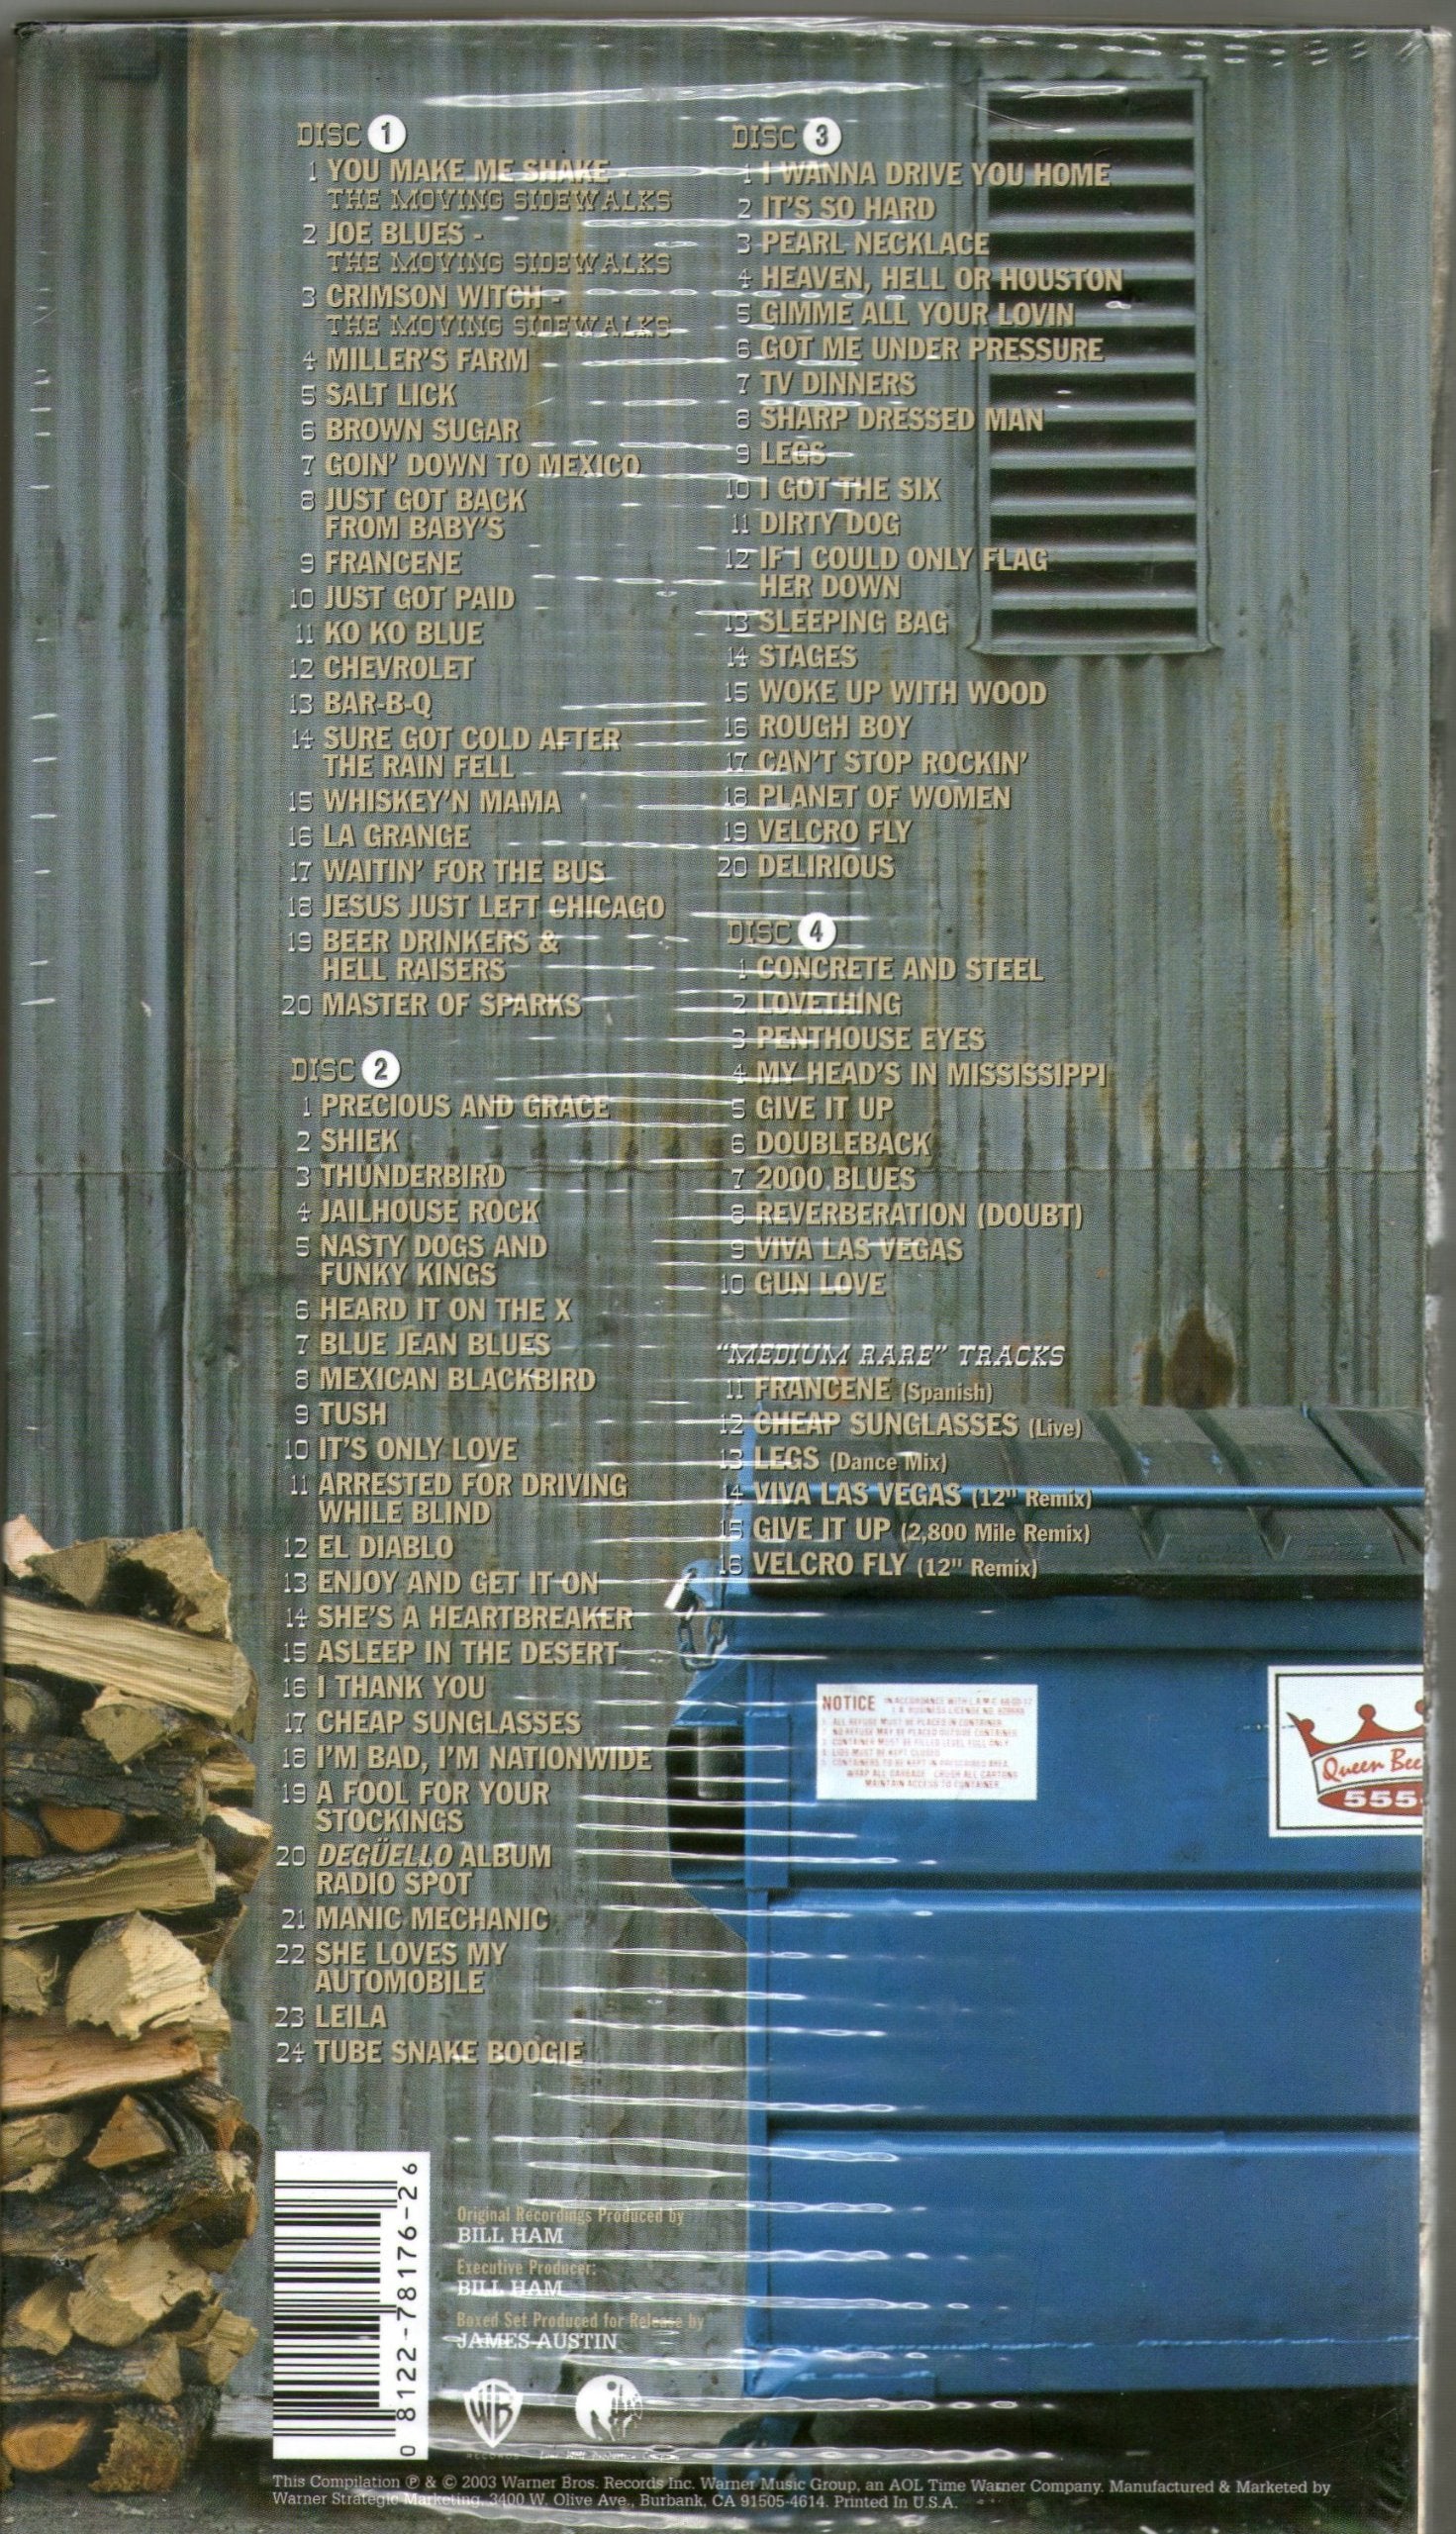 DISC 1
1 YOU MAKE ME SHAKE -
THE MOVING SIDEWALKS
2 JOE BLUES -
THE MOVING SIDEWALKS
3 CRIMSON WITCH -
THE MOVING SIDEWALKS
4 MILLER'S FARM
5 SALT LICK
6 BROWN SUGAR
7 GOIN' DOWN TO MEXICO
8 JUST GOT BACK
FROM BABY'S
9 FRANCENE
10 JUST GOT PAID
11 KO KO BLUE
12 CHEVROLET
13 BAR-B-Q
14 SURE GOT COLD AFTER
THE RAIN FELL
15 WHISKEY'N MAMA
16 LA GRANGE
17 WAITIN' FOR THE BUS
18 JESUS JUST LEFT CHICAGO
19 BEER DRINKERS &
HELL RAISERS
20 MASTER OF SPARKS
DISC 2
1 PRECIOUS AND GRACE
2 SHIEK
3 THUNDERBIRD
4 JAILHOUSE ROCK
5 NASTY DOGS AND
FUNKY KINGS
6 HEARD IT ON THE X
7 BLUE JEAN BLUES
8 MEXICAN BLACKBIRD
9 TUSH
10 IT'S ONLY LOVE
11 ARRESTED FOR DRIVING
WHILE BLIND
12 EL DIABLO
13 ENJOY AND GET IT ON
14 SHE'S A HEARTBREAKER
15 ASLEEP IN THE DESERT
16 I THANK YOU
17 CHEAP SUNGLASSES
18 I'M BAD, I'M NATIONWIDE
19 A FOOL FOR YOUR
STOCKINGS
20 DEGÜELLO ALBUM
RADIO SPOT
21 MANIC MECHANIC
22 SHE LOVES MY
AUTOMOBILE
23 LEILA
24 TUBE SNAKE BOOGIE
DISC 3
1 I WANNA DRIVE YOU HOME
2 IT'S SO HARD
3 PEARL NECKLACE
4 HEAVEN, HELL OR HOUSTON
5 GIMME ALL YOUR LOVIN
6 GOT ME UNDER PRESSURE
7 TV DINNERS
8 SHARP DRESSED MAN
9 LEGS
10 I GOT THE SIX
11 DIRTY DOG
12 IF I COULD ONLY FLAG
HER DOWN
13 SLEEPING BAG
14 STAGES
15 WOKE UP WITH WOOD
16 ROUGH BOY
17 CAN'T STOP ROCKIN'
18 PLANET OF WOMEN
19 VELCRO FLY
20 DELIRIOUS
DISC 4
1 CONCRETE AND STEEL
2 LOVETHING
3 PENTHOUSE EYES
4 MY HEAD'S IN MISSISSIPPI
5 GIVE IT UP
6 DOUBLEBACK
7 2000 BLUES
8 REVERBERATION (DOUBT)
9 VIVA LAS VEGAS
10 GUN LOVE
"MEDIUM RARE" TRACKS
11 FRANCENE (Spanish)
12 CHEAP SUNGLASSES (Live)
13 LEGS (Dance Mix)
14 VIVA LAS VEGAS (12" Remix)
15 GIVE IT UP (2,800 Mile Remix)
16 VELCRO FLY (12" Remix)
NOTICE
ALL REFUSE MUST BE PLACED IN CONTAINER
NO REFUSE MAY BE PLACED OUTSIDE CONTAINER
CONTAINER MUST BE FILLED LEVEL FULL ONLY
LIDS MUST BE KEPT CLOSED
CONTAINERS TO BE KEPT IN PRESCRIBED AREA
WRAP ALL GARBAGE CRUSH ALL CARTONS
MAINTAIN ACCESS TO CONTAINER
Queen Bee
555-
0 8122-78176-2 6
Original Recordings Produced by
BILL HAM
Executive Producer:
BILL HAM
Boxed Set Produced for Release by
JAMES AUSTIN
WB
RECORDS
This Compilation ℗ & © 2003 Warner Bros. Records Inc. Warner Music Group, an AOL Time Warner Company. Manufactured & Marketed by
Warner Strategic Marketing, 3400 W. Olive Ave., Burbank, CA 91505-4614. Printed In U.S.A.